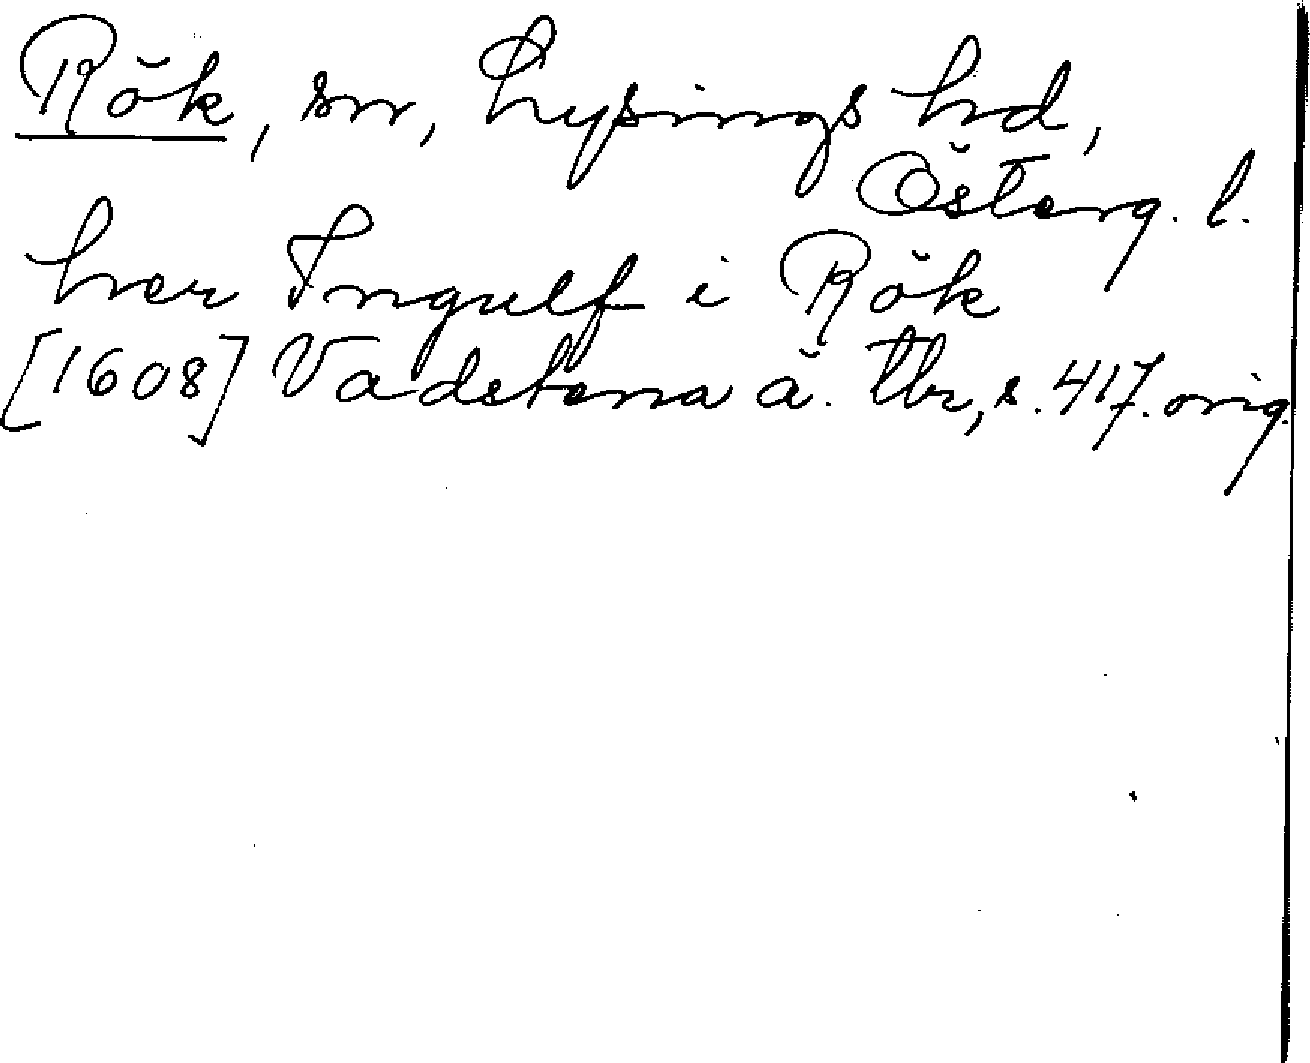 Rök, sn, Lysings hd,
Österg. l.
her Ingulf i Rök
[1608] Vadstena ä. tbr, s. 417. orig.